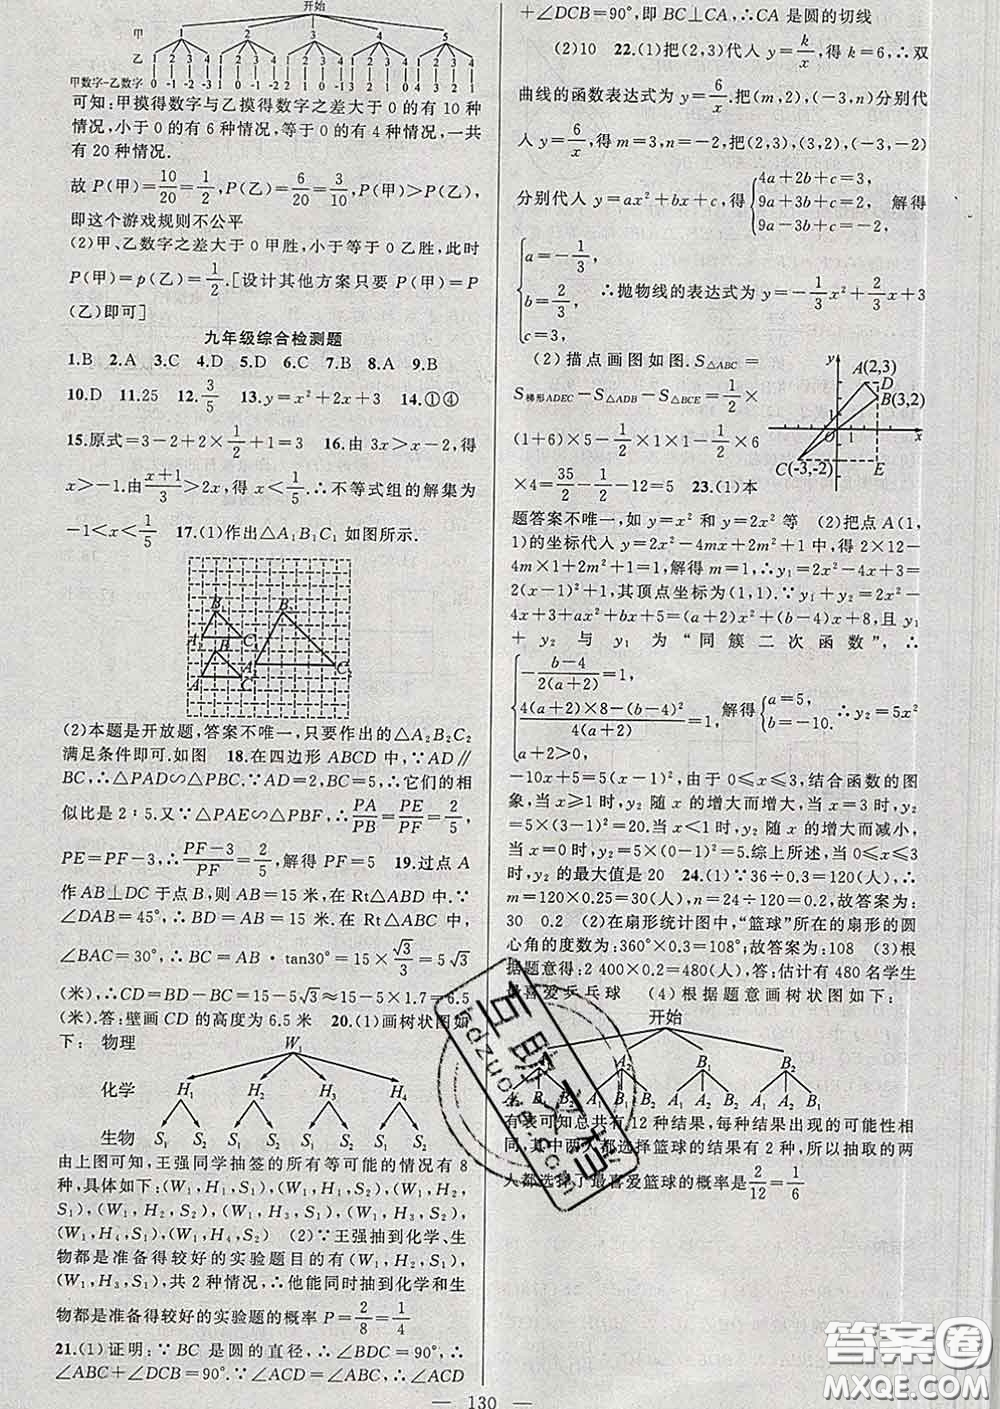 开始
甲 1 2 3 4 5
乙 1 2 3 4 1 2 3 4 1 2 3 4 1 2 3 4 1 2 3 4
甲数字-乙数字 0 -1 -2 -3 1 0 -1 -2 2 1 0 -1 3 2 1 0 4 3 2 1
可知:甲摸得数字与乙摸得数字之差大于 0 的有 10 种
情况,小于 0 的有 6 种情况,等于 0 的有 4 种情况,一共
有 20 种情况.
故 P(甲)=10/20=1/2,P(乙)=6/20=3/10,P(甲)>P(乙),
即这个游戏规则不公平
(2)甲、乙数字之差大于 0 甲胜,小于等于 0 乙胜,此时
P(甲)=p(乙)=1/2.[设计其他方案只要 P(甲)=P
(乙)即可]
九年级综合检测题
1.B 2.A 3.C 4.D 5.D 6.C 7.D 8.A 9.B
10.D 11.25 12.3/5 13.y=x²+2x+3 14.①④
15.原式=3-2+2×1/2+1=3 16.由 3x>x-2,得
x>-1.由(x+1)/3>2x,得 x<1/5.∴不等式组的解集为
-1<x<1/5 17.(1)作出△A₁B₁C₁ 如图所示.
B₁ B₂
A₁ C₁
B
A C A₂ C₂
(2)本题是开放题,答案不唯一,只要作出的△A₂B₂C₂
满足条件即可.如图 18.在四边形 ABCD 中,∵AD∥
BC,∴△PAD∽△PBC.∵AD=2,BC=5,∴它们的相
似比是 2∶5.又∵△PAE∽△PBF,∴PA/PB=PE/PF=2/5,
PE=PF-3,∴(PF-3)/PF=2/5,解得 PF=5 19.过点 A
作 AB⊥DC 于点 B,则 AB=15 米,在 Rt△ABD 中.∵
∠DAB=45°,∴BD=AB=15 米,在 Rt△ABC 中,
∠BAC=30°,∴BC=AB·tan30°=15×√3/3=5√3
(米),∴CD=BD-BC=15-5√3≈15-5×1.7=6.5
(米).答:壁画 CD 的高度为 6.5 米 20.(1)画树状图如
下: 物理 W₁
化学 H₁ H₂ H₃ H₄
生物 S₁ S₂ S₁ S₂ S₁ S₂ S₁ S₂
由上图可知,王强同学抽签的所有等可能的情况有 8
种,具体如下:(W₁,H₁,S₁),(W₁,H₁,S₂),(W₁,H₂,
S₁),(W₁,H₂,S₂),(W₁,H₃,S₁),(W₁,H₃,S₂),
(W₁,H₄,S₁),(W₁,H₄,S₂) (2)∵王强抽到化学、生
物都是准备得较好的实验题目的有(W₁,H₂,S₁),
(W₁,H₃,S₁),共 2 种情况,∴他能同时抽到化学和生
物都是准备得较好的实验题的概率 P=2/8=1/4
21.(1)证明:∵BC 是圆的直径,∴∠BDC=90°,∴
∠ABC+∠DCB=90°.∵∠ACD=∠ABC,∴∠ACD
+∠DCB=90°,即 BC⊥CA,∴CA 是圆的切线
(2)10 22.(1)把(2,3)代人 y=k/x,得 k=6,∴双
曲线的函数表达式为 y=6/x.把(m,2),(-3,n)分别代
人 y=6/x,得 m=3,n=-2,把(2,3),(3,2),(-3,-2)
分别代人 y=ax²+bx+c,得{4a+2b+c=3, 9a+3b+c=2, 9a-3b+c=-2, 解得
{a=-1/3, b=2/3, c=3, ∴抛物线的表达式为 y=-1/3x²+2/3x+3
(2)描点画图如图. S△ABC=
S梯形ADEC-S△ADB-S△BCE=1/2×
(1+6)×5-1/2×1×1-1/2×6
×4=35/2-1/2-12=5 23.(1)本
y A(2,3) D B(3,2) 1 O 1 x C(-3,-2) E
题答案不唯一,如 y=x² 和 y=2x² 等 (2)把点 A(1,
1)的坐标代人 y=2x²-4mx+2m²+1 中,得 2×1²-
4m×1+2m²+1=1,解得 m=1,∴y₁=2x²-4x+3=
2(x-1)²+1,其顶点坐标为(1,1).∵y₁+y₂=2x²-
4x+3+ax²+bx+5=(a+2)x²+(b-4)x+8,且 y₁
+y₂ 与 y₁ 为“同簇二次函数”,∴
{-(b-4)/2(a+2)=1, (4(a+2)×8-(b-4)²)/4(a+2)=1, a+2>0, 解得{a=5, b=-10. ∴y₂=5x²
-10x+5=5(x-1)²,由于 0≤x≤3,结合函数的图
象,当 x≥1 时,y₂ 随 x 的增大而增大,当 x=3 时,y₂=
5×(3-1)²=20.当 x<1 时,y₂ 随 x 的增大而减小,
当 x=0 时,y₂=5×(0-1)²=5.综上所述,当 0≤x≤3
时,y₂ 的最大值是 20 24.(1)∵36÷0.3=120(人),∴
m=120×0.25=30(人),n=24÷120=0.2,故答案为:
30 0.2 (2)在扇形统计图中,“篮球”所在的扇形的圆
心角的度数为:360°×0.3=108°;故答案为:108 (3)根
据题意得:2 400×0.2=480(人),答:估计有 480 名学生
最喜爱乒乓球 (4)根据题意画树状图如下:
开始
A₂ B₁ B₂
A₂ B₁ B₂ A₁ B₁ B₂ A₁ A₂ B₂ A₁ A₂ B₁
有表可知总共有 12 种结果,每种结果出现的可能性相
同,其中两人都选择篮球的结果有 2 种,所以抽取的两
人都选择了最喜爱篮球的概率是 2/12=1/6
互助文档
hdzuoye.com
答案圈
MXQE.COM
— 130 —